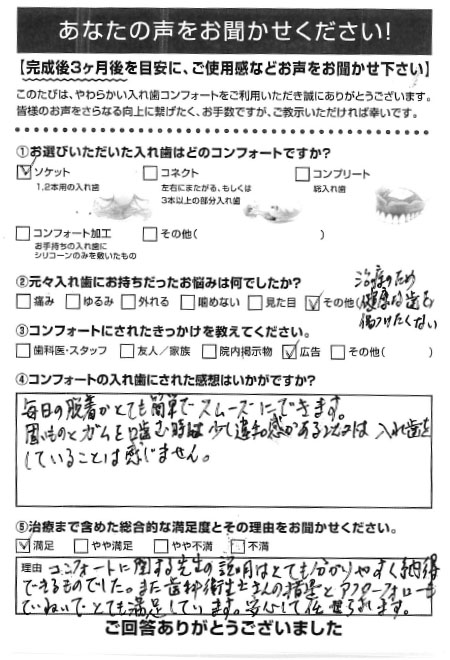 あなたの声をお聞かせください!
【完成後3ヶ月後を目安に、ご使用感などお声をお聞かせ下さい】
このたびは、やわらかい入れ歯コンフォートをご利用いただき誠にありがとうございます。
皆様のお声をさらなる向上に繋げたく、お手数ですが、ご教示いただければ幸いです。
①お選びいただいた入れ歯はどのコンフォートですか?
☑ソケット □コネクト □コンプリート
1,2本用の入れ歯 左右にまたがる、もしくは 総入れ歯
3本以上の部分入れ歯
□コンフォート加工 □その他( )
お手持ちの入れ歯に
シリコーンのみを敷いたもの
②元々入れ歯にお持ちだったお悩みは何でしたか?
□痛み □ゆるみ □外れる □噛めない □見た目 ☑その他(治療のため
健康な歯を
傷つけたくない
③コンフォートにされたきっかけを教えてください。
□歯科医・スタッフ □友人/家族 □院内掲示物 ☑広告 □その他( )
④コンフォートの入れ歯にされた感想はいかがですか?
毎日の脱着がとても簡単でスムーズにできます。
固いものとガムを噛む時は少し違和感がある以外は入れ歯を
していることは感じません。
⑤治療まで含めた総合的な満足度とその理由をお聞かせください。
☑満足 □やや満足 □やや不満 □不満
理由 コンフォートに関する先生の説明はとても分かりやすく納得
できるものでした。また歯科衛生士さんの措置とアフターフォローも
ていねいでとても満足しています。安心して任せられます。
ご回答ありがとうございました